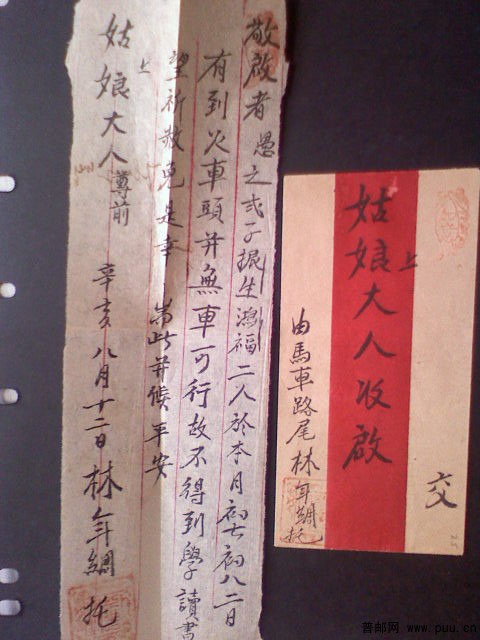 敬啟者愚之弍子振生鴻福二人於本月初七初八二日
有到火車頭并無車可行故不得到學讀書
望祈赦免是幸 耑此并候平安
上
姑娘大人尊前
辛亥八月十二日林年綢托
交
姑娘大人收啟
上
由馬車路尾林年綢托
普邮网 www.puu.cn